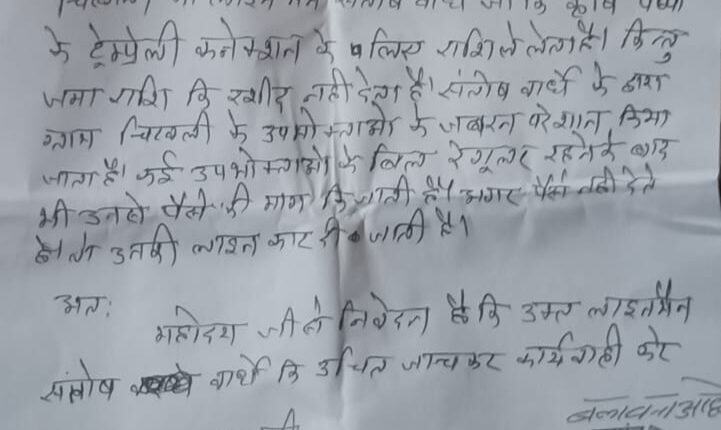 संतोष वाघे जो कि कृषि पम्पो
के ट्रेम्प्रेली कनेक्शन के लिए राशि ले लेता है। किन्तु
जमा राशि कि रशीद नही देता है। संतोष वाघे के द्वारा
ग्राम चिखली के उपभोक्ताओ के जबरन परेशान किया
जाता है। कई उपभोक्ताओ के बिल रेगूलर रहने के बाद
भी उनसे पैसे की मांग कि जाती है। अगर पैसे नही देते
है। तो उनकी लाइन काट दी जाती है।
अत:
महोदय जी से निवेदन है कि उक्त लाइनमैन
संतोष वाघे कि उचित जाच कर कार्यवाही करे